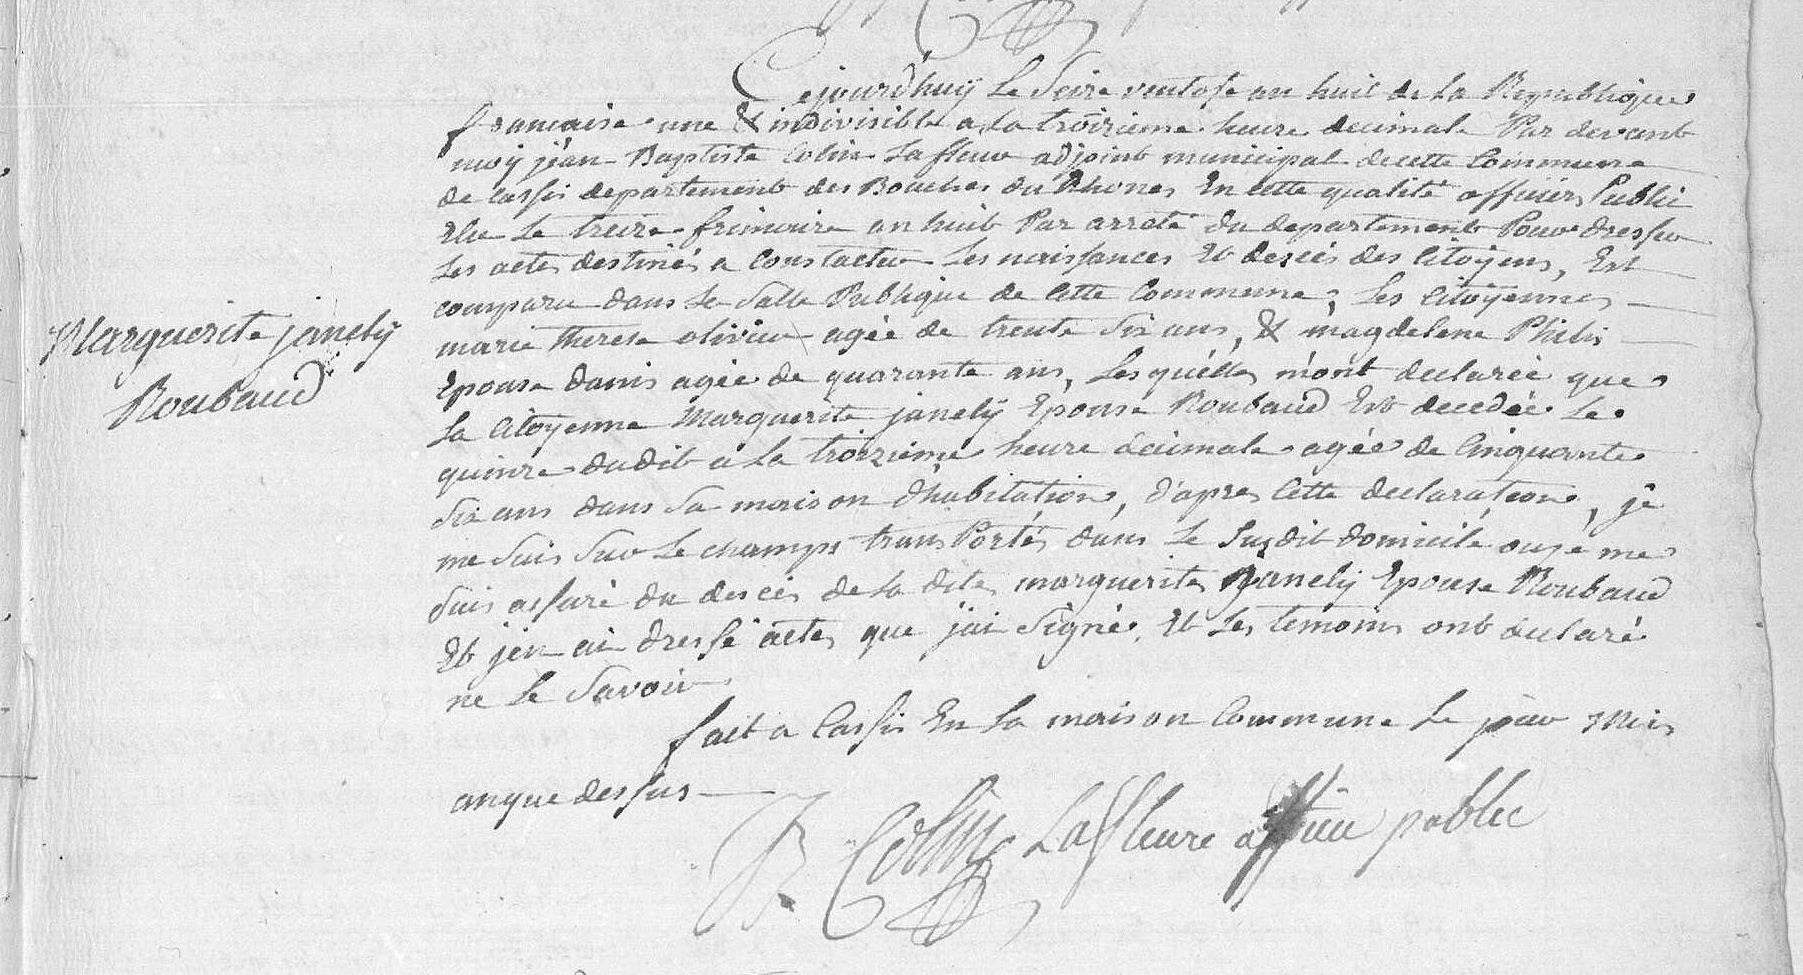 Cejourd'huÿ Le Seize ventose an huit de la Republique
francaise une & indivisible a la troizieme heure decimale Par devant
moÿ jean Baptiste Colin Lafleur adjoint municipal de cette Commune
de Cassis departement des Bouches du Rhone, En cette qualité officier Public
Elu Le treize frimaire an huit Par arreté du departement Pour dresser
Les actes destinés a Constater Les naissances Et decés des Citoÿens, Est
comparu dans La Salle Publique de Cette Commune, Les Citoÿennes
marie therese olivier agée de trente Six ans, & magdelene
Marguerite janelÿ
Roubaud
Epouse agée de quarante ans, Lesquelles m'ont declarée que
La Citoÿenne Marguerite janelÿ Epouse Roubaud Est decedée Le
quinze dudit a La troizieme heure decimale agée de Cinquante
Six ans dans Sa maison d'habitation, d'apres Cette declaration, je
me Suis Sur Le champs transPorté dans Le Susdit domicile ou je me
Suis assuré du decés de La dite marguerite janelÿ Epouse Roubaud
Et j'en ai dressé acte, que j'ai Signé, Et Les temoins ont declaré
ne Le Savoir
fait a Cassis En La maison Commune Le jour Mois
an que dessus
B Colin Lafleure public